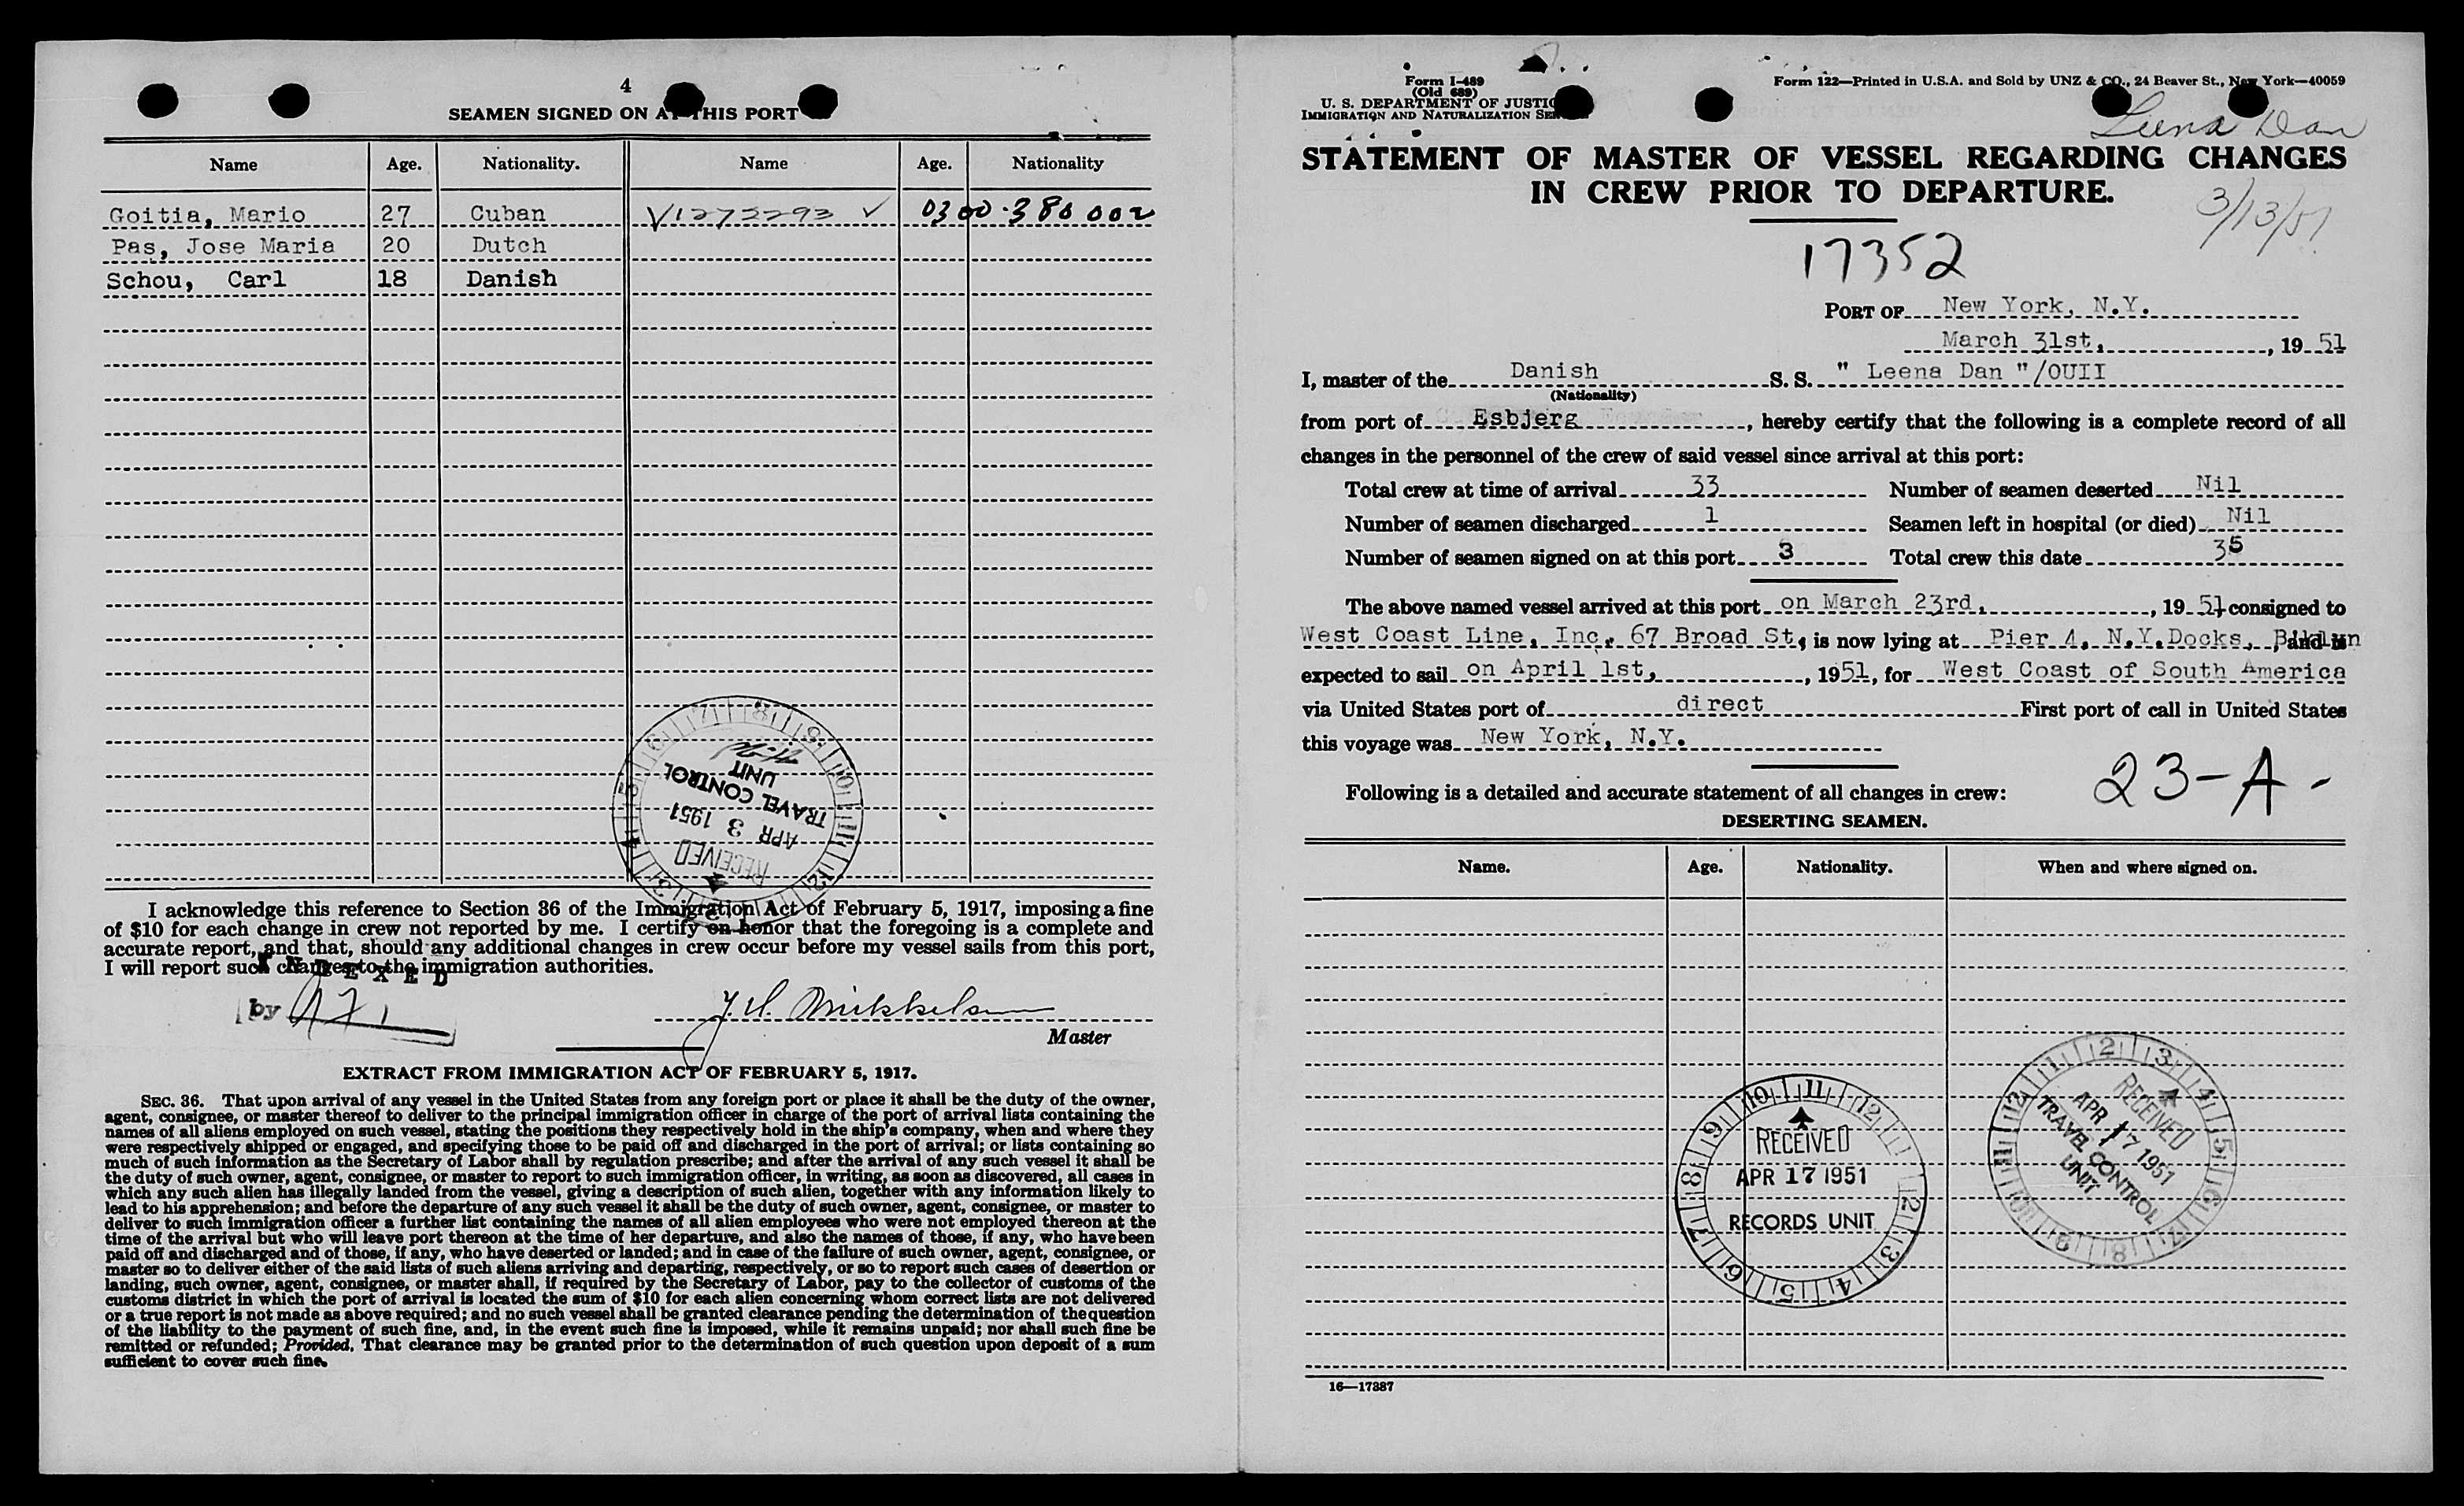 4
SEAMEN SIGNED ON AT THIS PORT
Name Age. Nationality. Name Age. Nationality
Goitia, Mario 27 Cuban V1272293 ✓ 0300-380 002
Pas, Jose Maria 20 Dutch
Schou, Carl 18 Danish
RECEIVED
APR 3 1951
TRAVEL CONTROL
UNIT
I acknowledge this reference to Section 36 of the Immigration Act of February 5, 1917, imposing a fine
of $10 for each change in crew not reported by me. I certify on honor that the foregoing is a complete and
accurate report, and that, should any additional changes in crew occur before my vessel sails from this port,
I will report such changes to the immigration authorities.
INDEXED
by
Mikkelsen
Master
EXTRACT FROM IMMIGRATION ACT OF FEBRUARY 5, 1917.
SEC. 36. That upon arrival of any vessel in the United States from any foreign port or place it shall be the duty of the owner,
agent, consignee, or master thereof to deliver to the principal immigration officer in charge of the port of arrival lists containing the
names of all aliens employed on such vessel, stating the positions they respectively hold in the ship's company, when and where they
were respectively shipped or engaged, and specifying those to be paid off and discharged in the port of arrival; or lists containing so
much of such information as the Secretary of Labor shall by regulation prescribe; and after the arrival of any such vessel it shall be
the duty of such owner, agent, consignee, or master to report to such immigration officer, in writing, as soon as discovered, all cases in
which any such alien has illegally landed from the vessel, giving a description of such alien, together with any information likely to
lead to his apprehension; and before the departure of any such vessel it shall be the duty of such owner, agent, consignee, or master to
deliver to such immigration officer a further list containing the names of all alien employees who were not employed thereon at the
time of the arrival but who will leave port thereon at the time of her departure, and also the names of those, if any, who have been
paid off and discharged and of those, if any, who have deserted or landed; and in case of the failure of such owner, agent, consignee, or
master so to deliver either of the said lists of such aliens arriving and departing, respectively, or so to report such cases of desertion or
landing, such owner, agent, consignee, or master shall, if required by the Secretary of Labor, pay to the collector of customs of the
customs district in which the port of arrival is located the sum of $10 for each alien concerning whom correct lists are not delivered
or a true report is not made as above required; and no such vessel shall be granted clearance pending the determination of the question
of the liability to the payment of such fine, and, in the event such fine is imposed, while it remains unpaid; nor shall such fine be
remitted or refunded; Provided, That clearance may be granted prior to the determination of such question upon deposit of a sum
sufficient to cover such fine.
Form I-489
(Old 689)
U. S. DEPARTMENT OF JUSTICE
IMMIGRATION AND NATURALIZATION SERVICE
Form 122—Printed in U.S.A. and Sold by UNZ & CO., 24 Beaver St., New York—40059
Leena Dan
STATEMENT OF MASTER OF VESSEL REGARDING CHANGES
IN CREW PRIOR TO DEPARTURE.
3/13/51
17352
PORT OF New York, N.Y.
March 31st, , 19 51
I, master of the Danish S. S. " Leena Dan "/OUII
(Nationality)
from port of Esbjerg , hereby certify that the following is a complete record of all
changes in the personnel of the crew of said vessel since arrival at this port:
Total crew at time of arrival 33 Number of seamen deserted Nil
Number of seamen discharged 1 Seamen left in hospital (or died) Nil
Number of seamen signed on at this port 3 Total crew this date 35
The above named vessel arrived at this port on March 23rd, , 19 51 consigned to
West Coast Line, Inc. 67 Broad St, is now lying at Pier 4, N.Y.Docks, Bklyn and is
expected to sail on April 1st, , 1951, for West Coast of South America
via United States port of direct First port of call in United States
this voyage was New York, N.Y.
23-A-
Following is a detailed and accurate statement of all changes in crew:
DESERTING SEAMEN.
Name. Age. Nationality. When and where signed on.
RECEIVED
APR 17 1951
RECORDS UNIT
RECEIVED
APR 17 1951
TRAVEL CONTROL
UNIT
16—17387